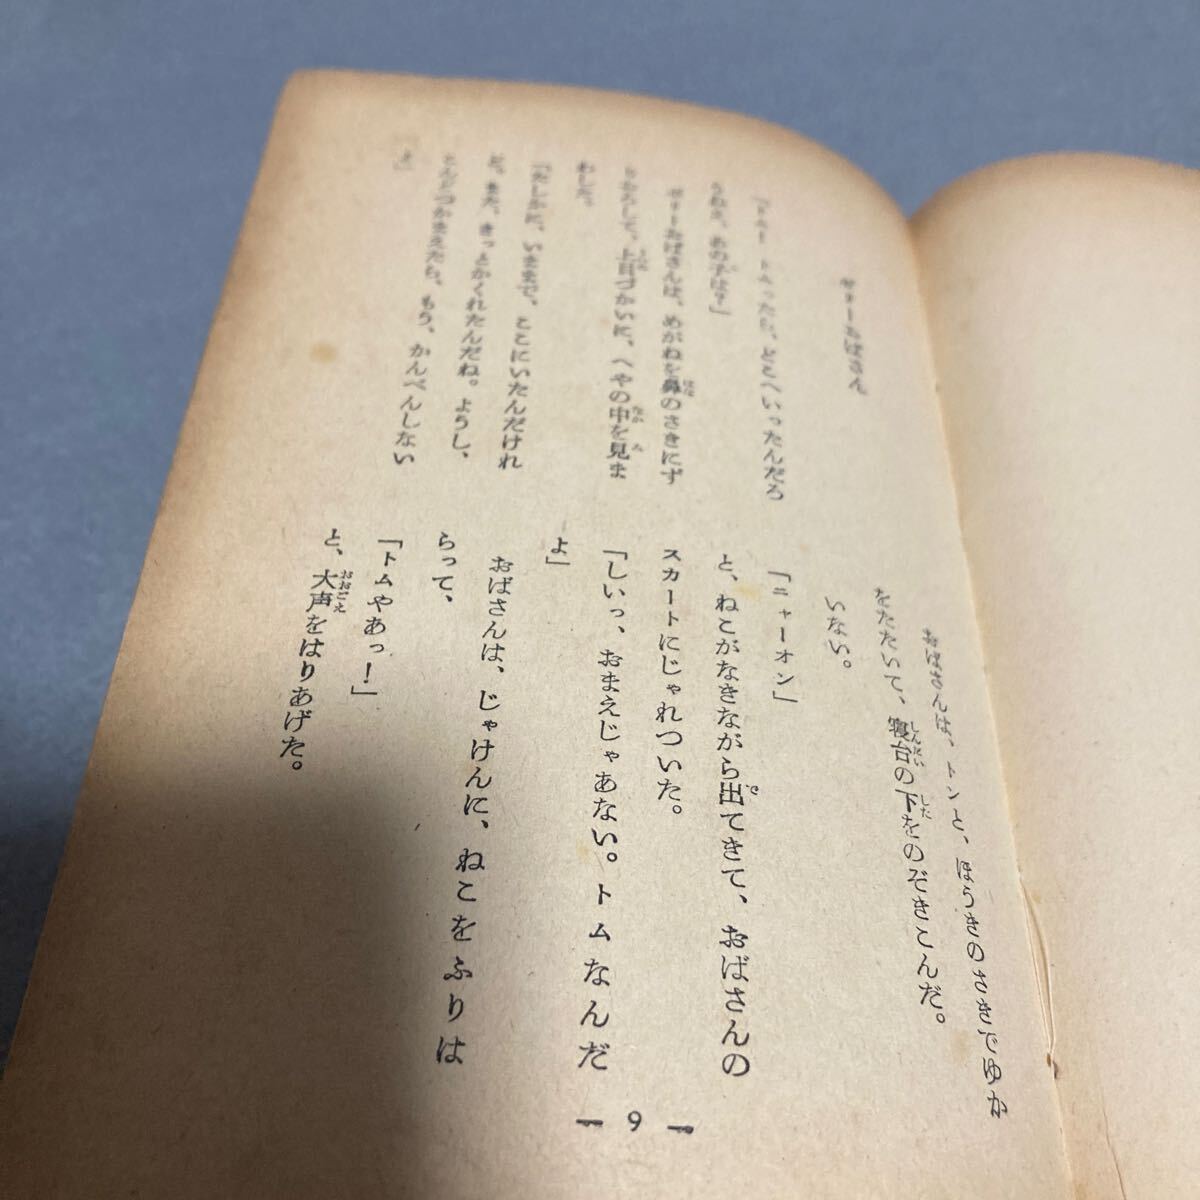 ポリーおばさん
「トムー トムったら、どこへいったんだろ
うねえ、あの子は？」
ポリーおばさんは、めがねを鼻のさきにず
りおろして、上目づかいに、へやの中を見ま
わした。
「たしかに、いままで、ここにいたんだけれ
ど。また、きっとかくれたんだね。ようし、
こんどつかまえたら、もう、かんべんしない
よ」
おばさんは、トンと、ほうきのさきでゆか
をたたいて、寝台の下をのぞきこんだ。
いない。
「ニャーオン」
と、ねこがなきながら出てきて、おばさんの
スカートにじゃれついた。
「しいっ、おまえじゃあない。トムなんだ
よ」
おばさんは、じゃけんに、ねこをふりは
らって、
「トムやあっ！」
と、大声をはりあげた。
— 9 —